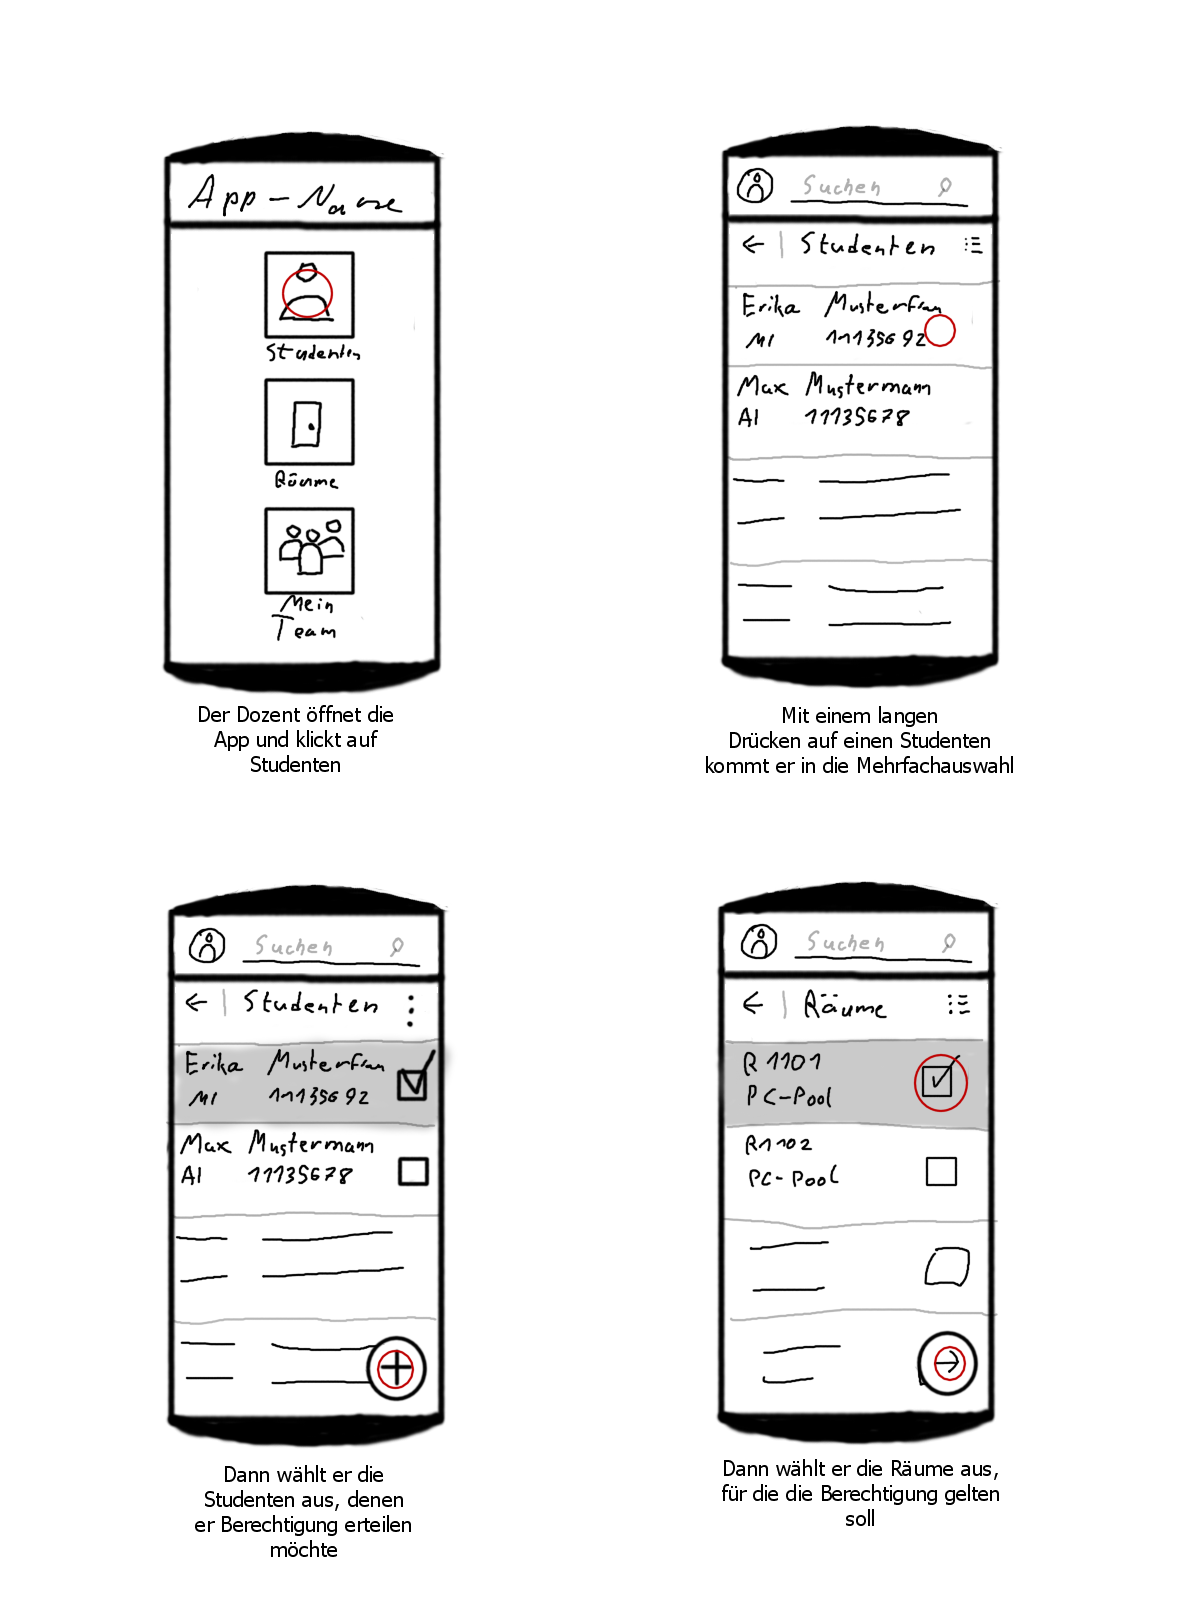 App-Name
Studenten
Räume
Mein
Team
Der Dozent öffnet die
App und klickt auf
Studenten
Suchen
Studenten
Erika Musterfrau
MI 11135692
Max Mustermann
AI 11135678
Mit einem langen
Drücken auf einen Studenten
kommt er in die Mehrfachauswahl
Suchen
Studenten
Erika Musterfrau
MI 11135692
Max Mustermann
AI 11135678
Dann wählt er die
Studenten aus, denen
er Berechtigung erteilen
möchte
Suchen
Räume
R 1101
PC-Pool
R1102
PC-Pool
Dann wählt er die Räume aus,
für die die Berechtigung gelten
soll